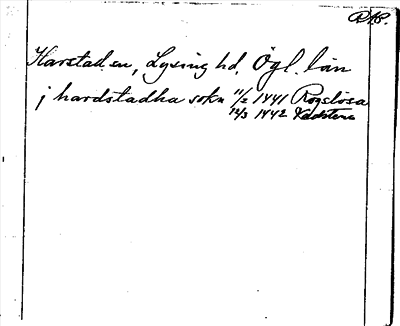 RAP.
Harstad sn, Lysing hd, Ögl. län
j hardstadha sokn 11/2 1441 Rogslösa
12/3 1442 Vadstena